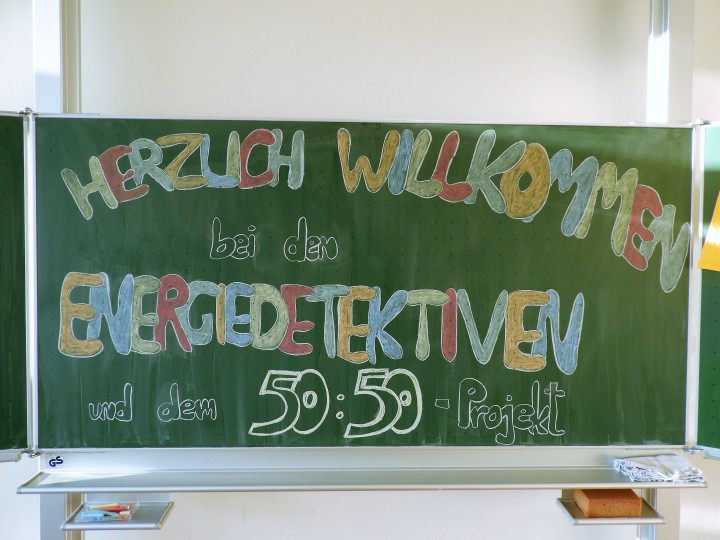 HERZLICH WILLKOMMEN
bei den
ENERGIEDETEKTIVEN
und dem 50:50-Projekt
GS